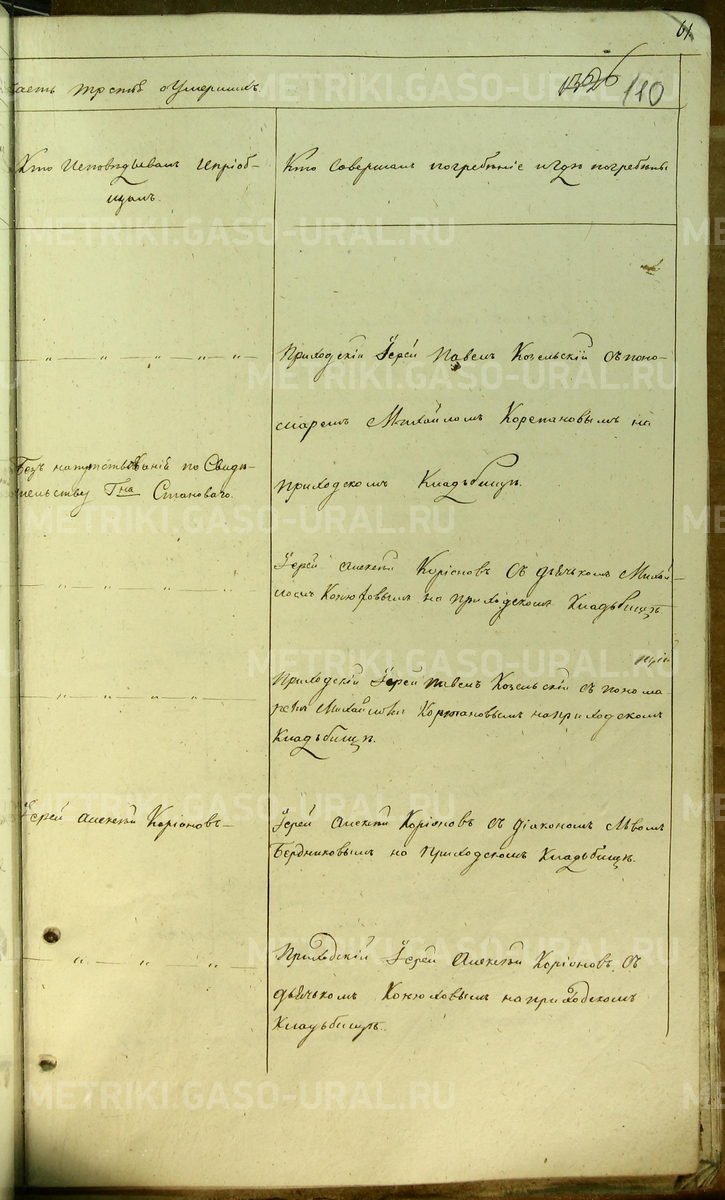 61
часть третія о умершихъ.
1326
110
Кто исповѣдывалъ и пріоб-
щалъ.
Кто совершалъ погребеніе и гдѣ погребены
Приходскій Іерей Павелъ Козельскій съ поно-
маремъ Михайломъ Корепановымъ на
приходскомъ кладьбищѣ.
Безъ напутствованій по свидѣ-
тельству Гна Становаго.
Іерей Алексѣй Коріоновъ съ дьячькомъ Михай-
ломъ Конюховымъ на приходскомъ кладьбищѣ
Приходскій Іерей Павелъ Козельскій съ понома
ремъ Михайломъ Корепановымъ на приходскомъ
кладьбищѣ.
Іерей Алексѣй Коріоновъ
Іерей Алексѣй Коріоновъ съ діакономъ Львомъ
Бердниковымъ на приходскомъ кладьбищѣ.
Приходскій Іерей Алексѣй Коріоновъ съ
дьячькомъ Конюховымъ на приходскомъ
кладьбищѣ.
METRIKI.GASO-URAL.RU